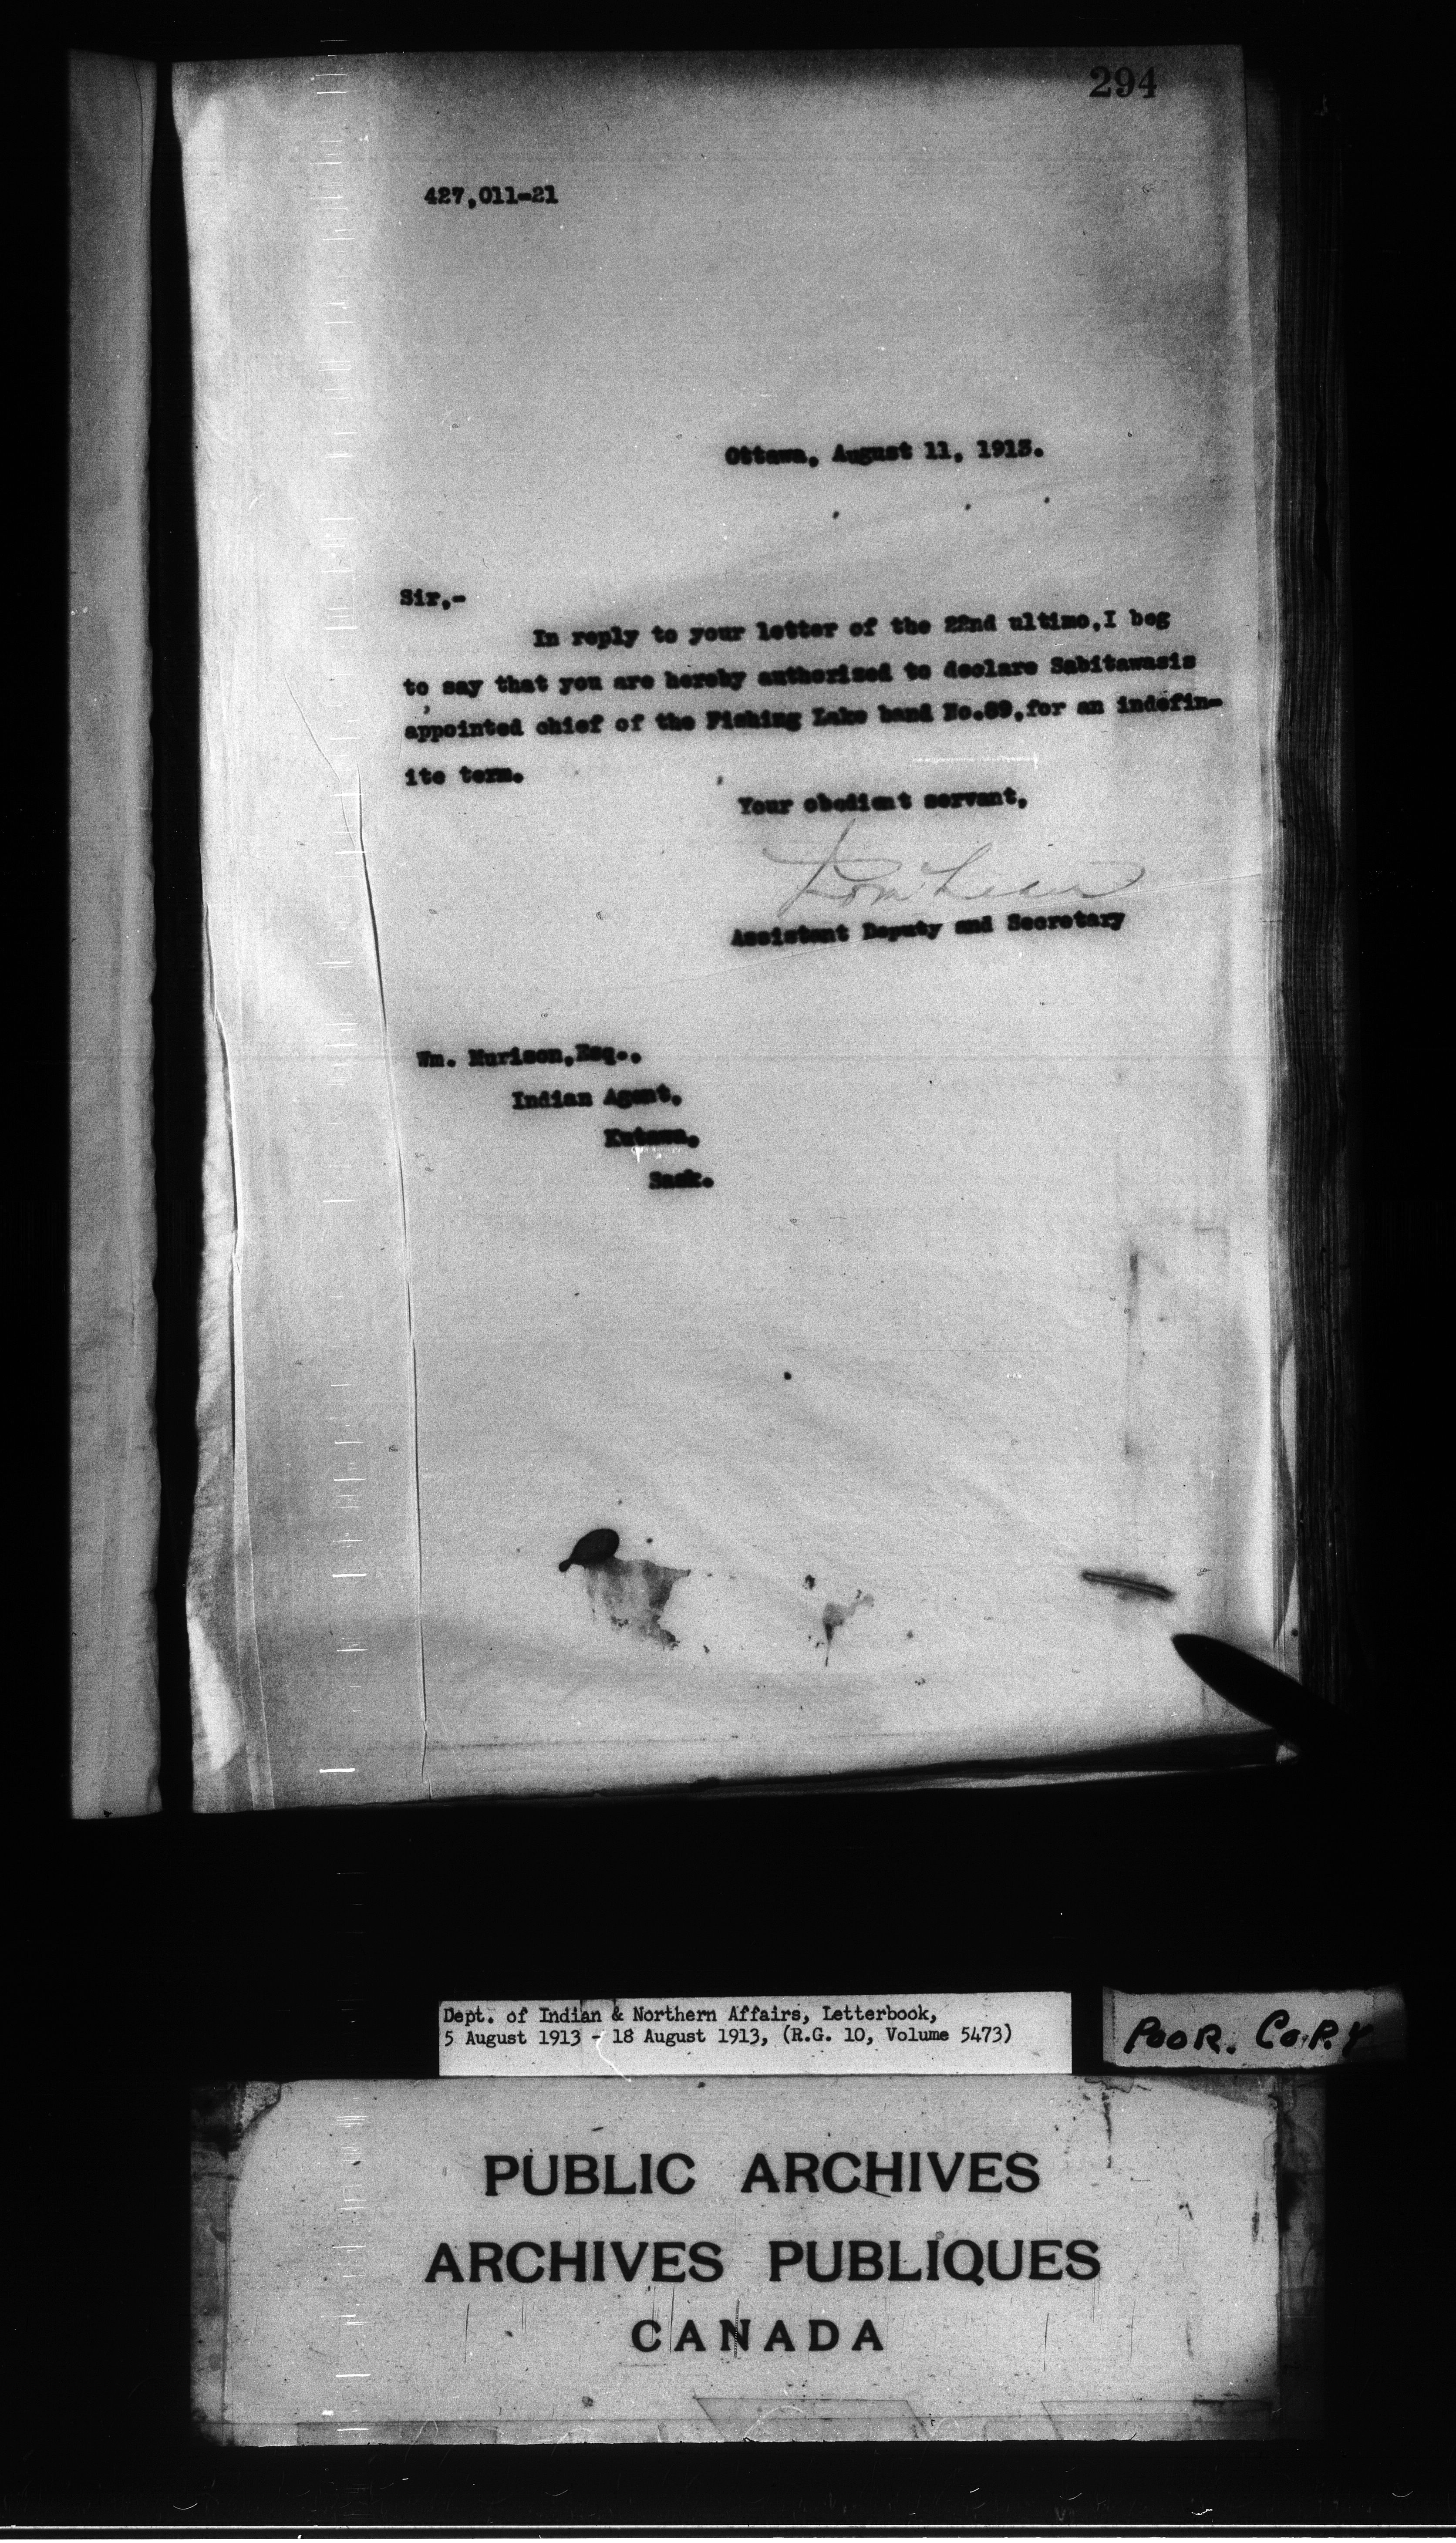 294
427,011-21
Ottawa, August 11, 1913.
Sir,-
In reply to your letter of the 22nd ultimo,I beg
to say that you are hereby authorized to declare Sabitawasis
appointed chief of the Fishing Lake band No.89,for an indefin-
ite term.
Your obedient servant,
Assistant Deputy and Secretary
Wm. Murison,Esq.,
Indian Agent,
Kutawa,
Sask.
Dept. of Indian & Northern Affairs, Letterbook,
5 August 1913 - 18 August 1913, (R.G. 10, Volume 5473)
POOR. COPY
PUBLIC ARCHIVES
ARCHIVES PUBLIQUES
CANADA